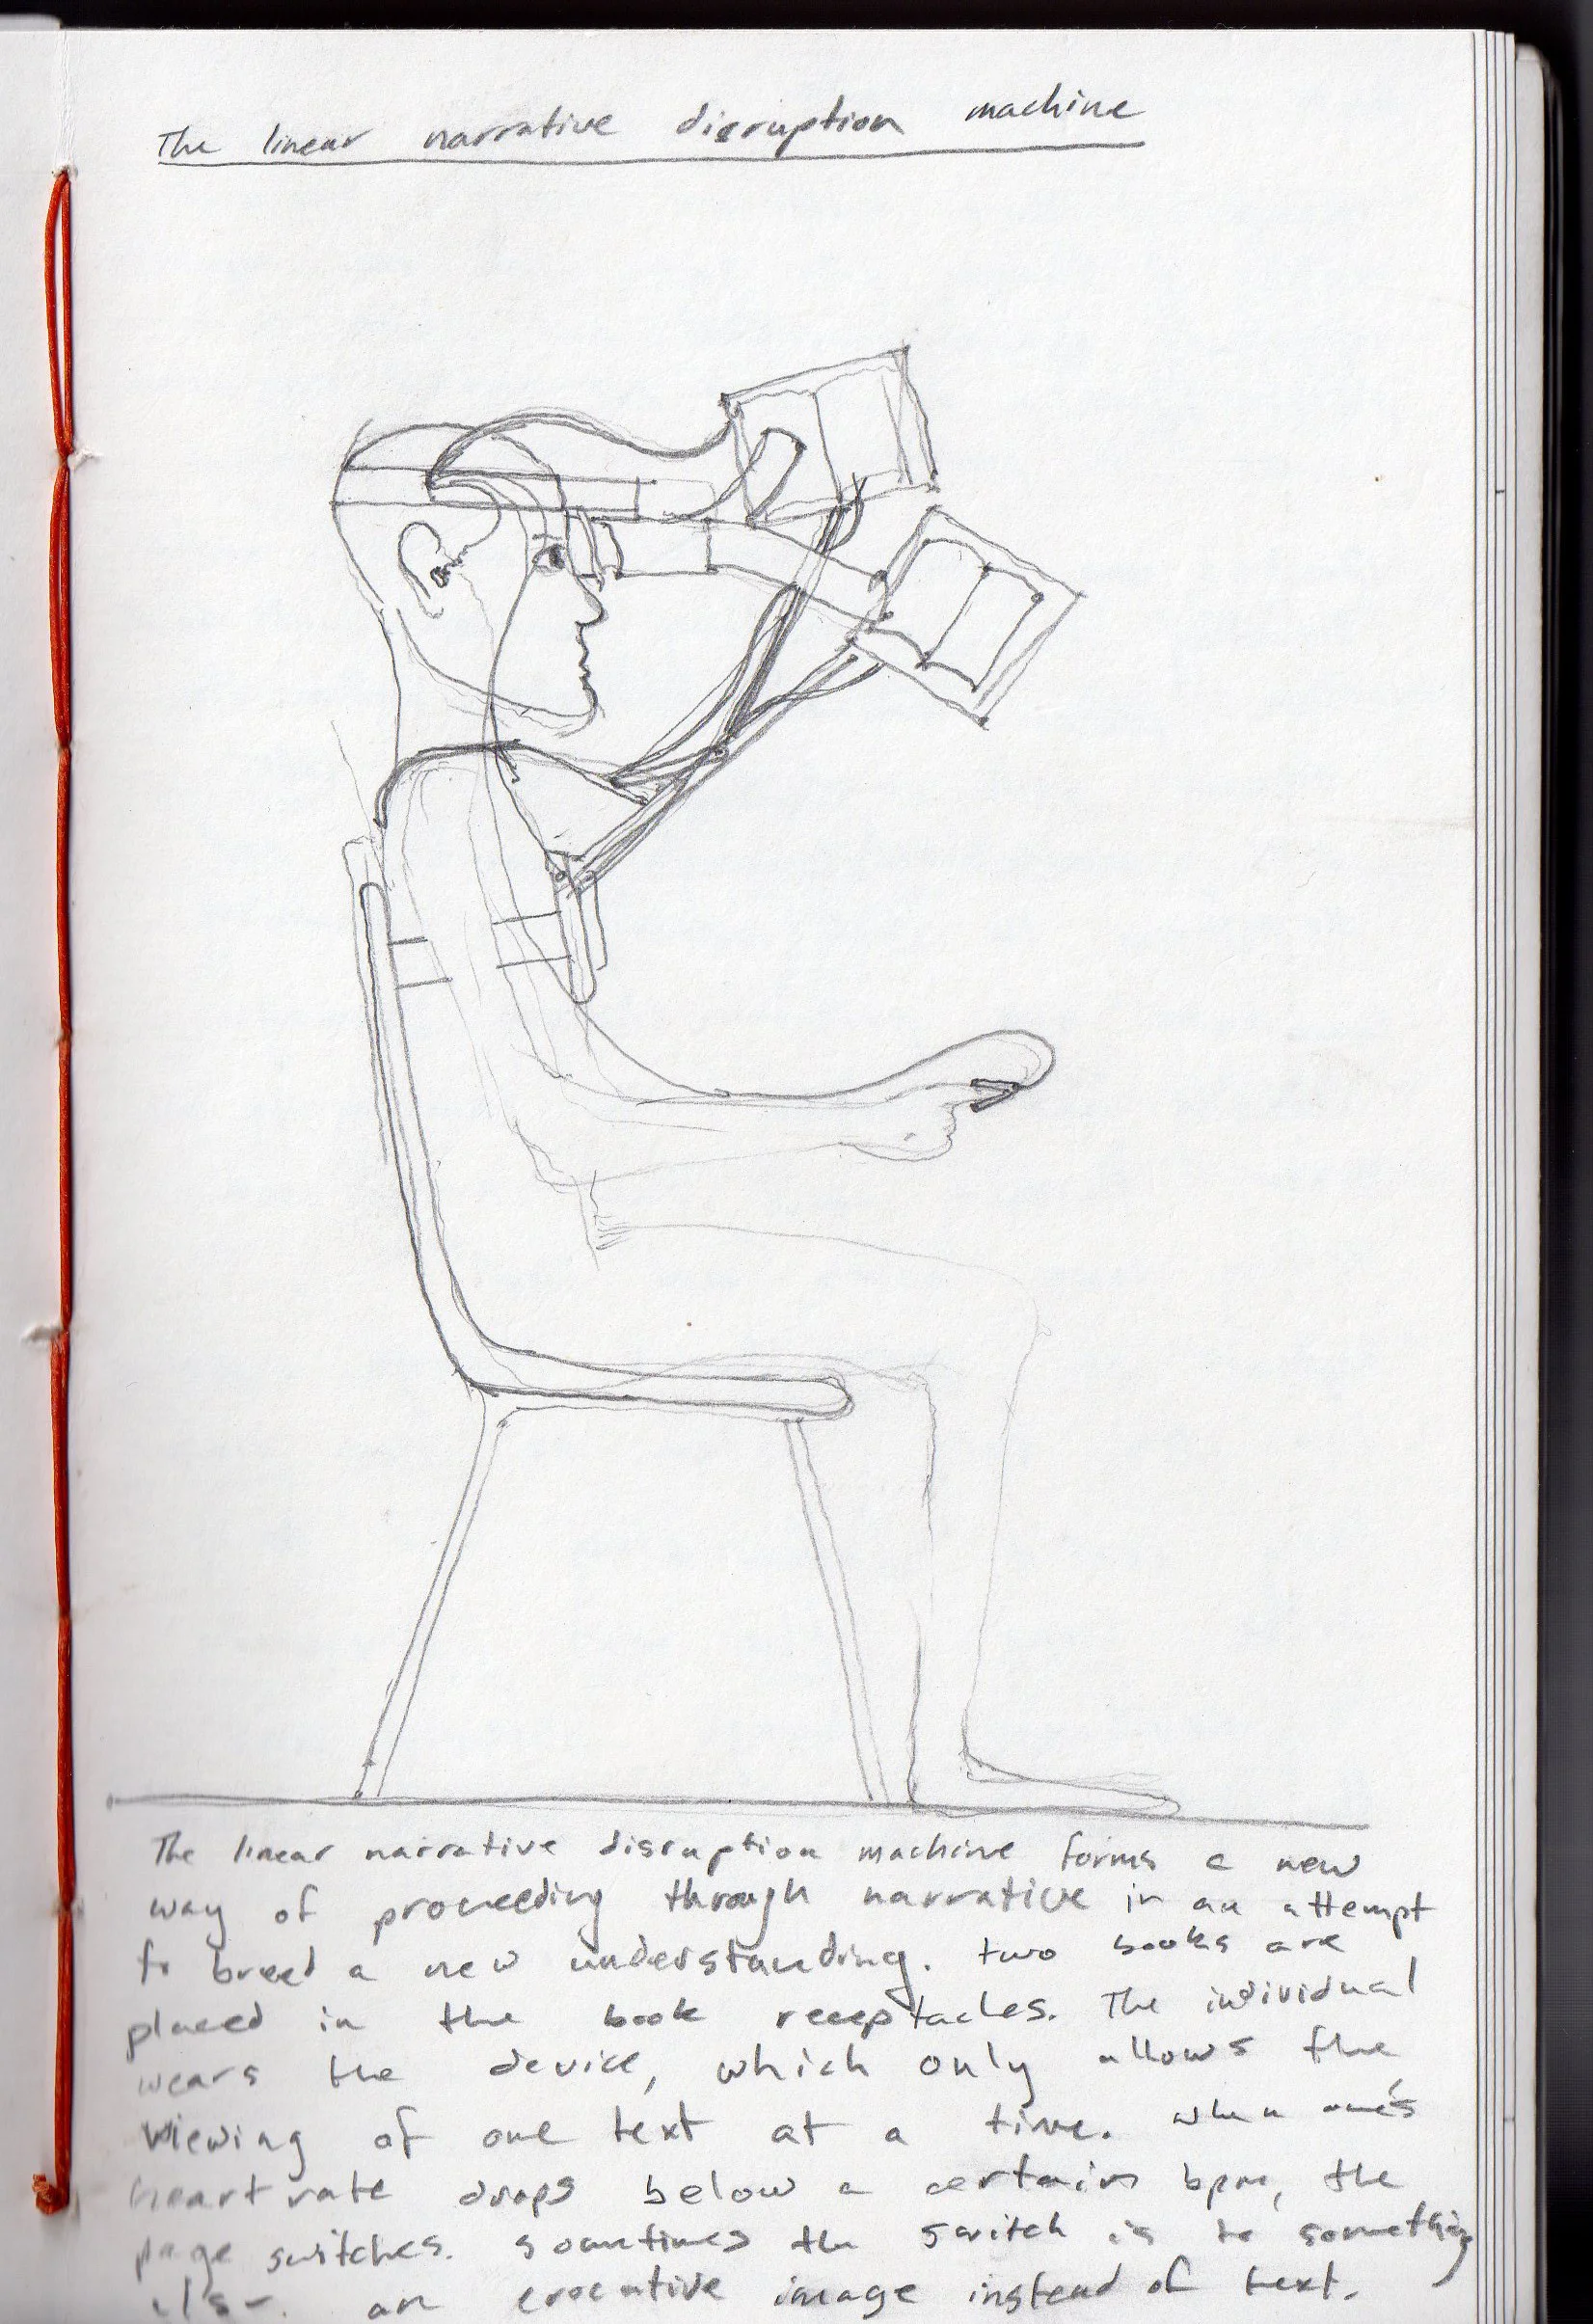 The linear narrative disruption machine
The linear narrative disruption machine forms a new
way of proceeding through narrative in an attempt
to breed a new understanding. two books are
placed in the book receptacles. The individual
wears the device, which only allows the
viewing of one text at a time. when one's
heart rate drops below a certain bpm, the
page switches. sometimes the switch is to something
else - an evocative image instead of text.